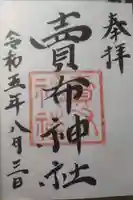 奉拝
賣布神社
令和五年八月三日